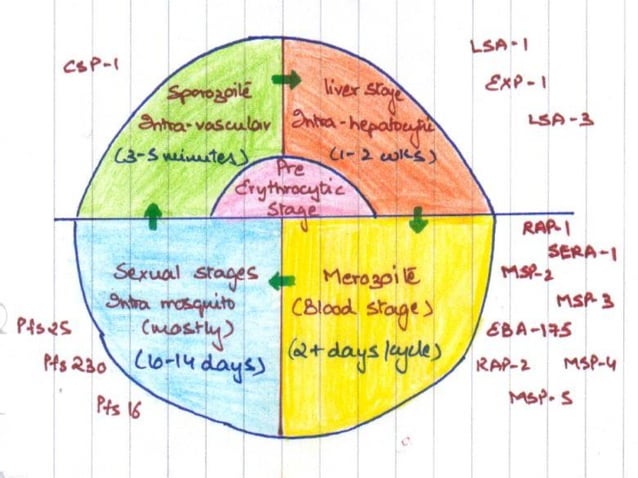 CSP-1
LSA-1
EXP-1
LSA-3
Sporozoite
Intra-vascular
(3-5 minutes)
liver stage
Intra-hepatocytic
(1-2 wks)
Pre
Erythrocytic
Stage
Sexual stages
Intra mosquito
(mostly)
(10-14 days)
Merozoite
(Blood stage)
(2+ days/cycle)
RAP-1
SERA-1
MSP-2
MSP-3
EBA-175
RAP-2
MSP-4
MSP-5
Pfs25
Pfs 230
Pfs 16